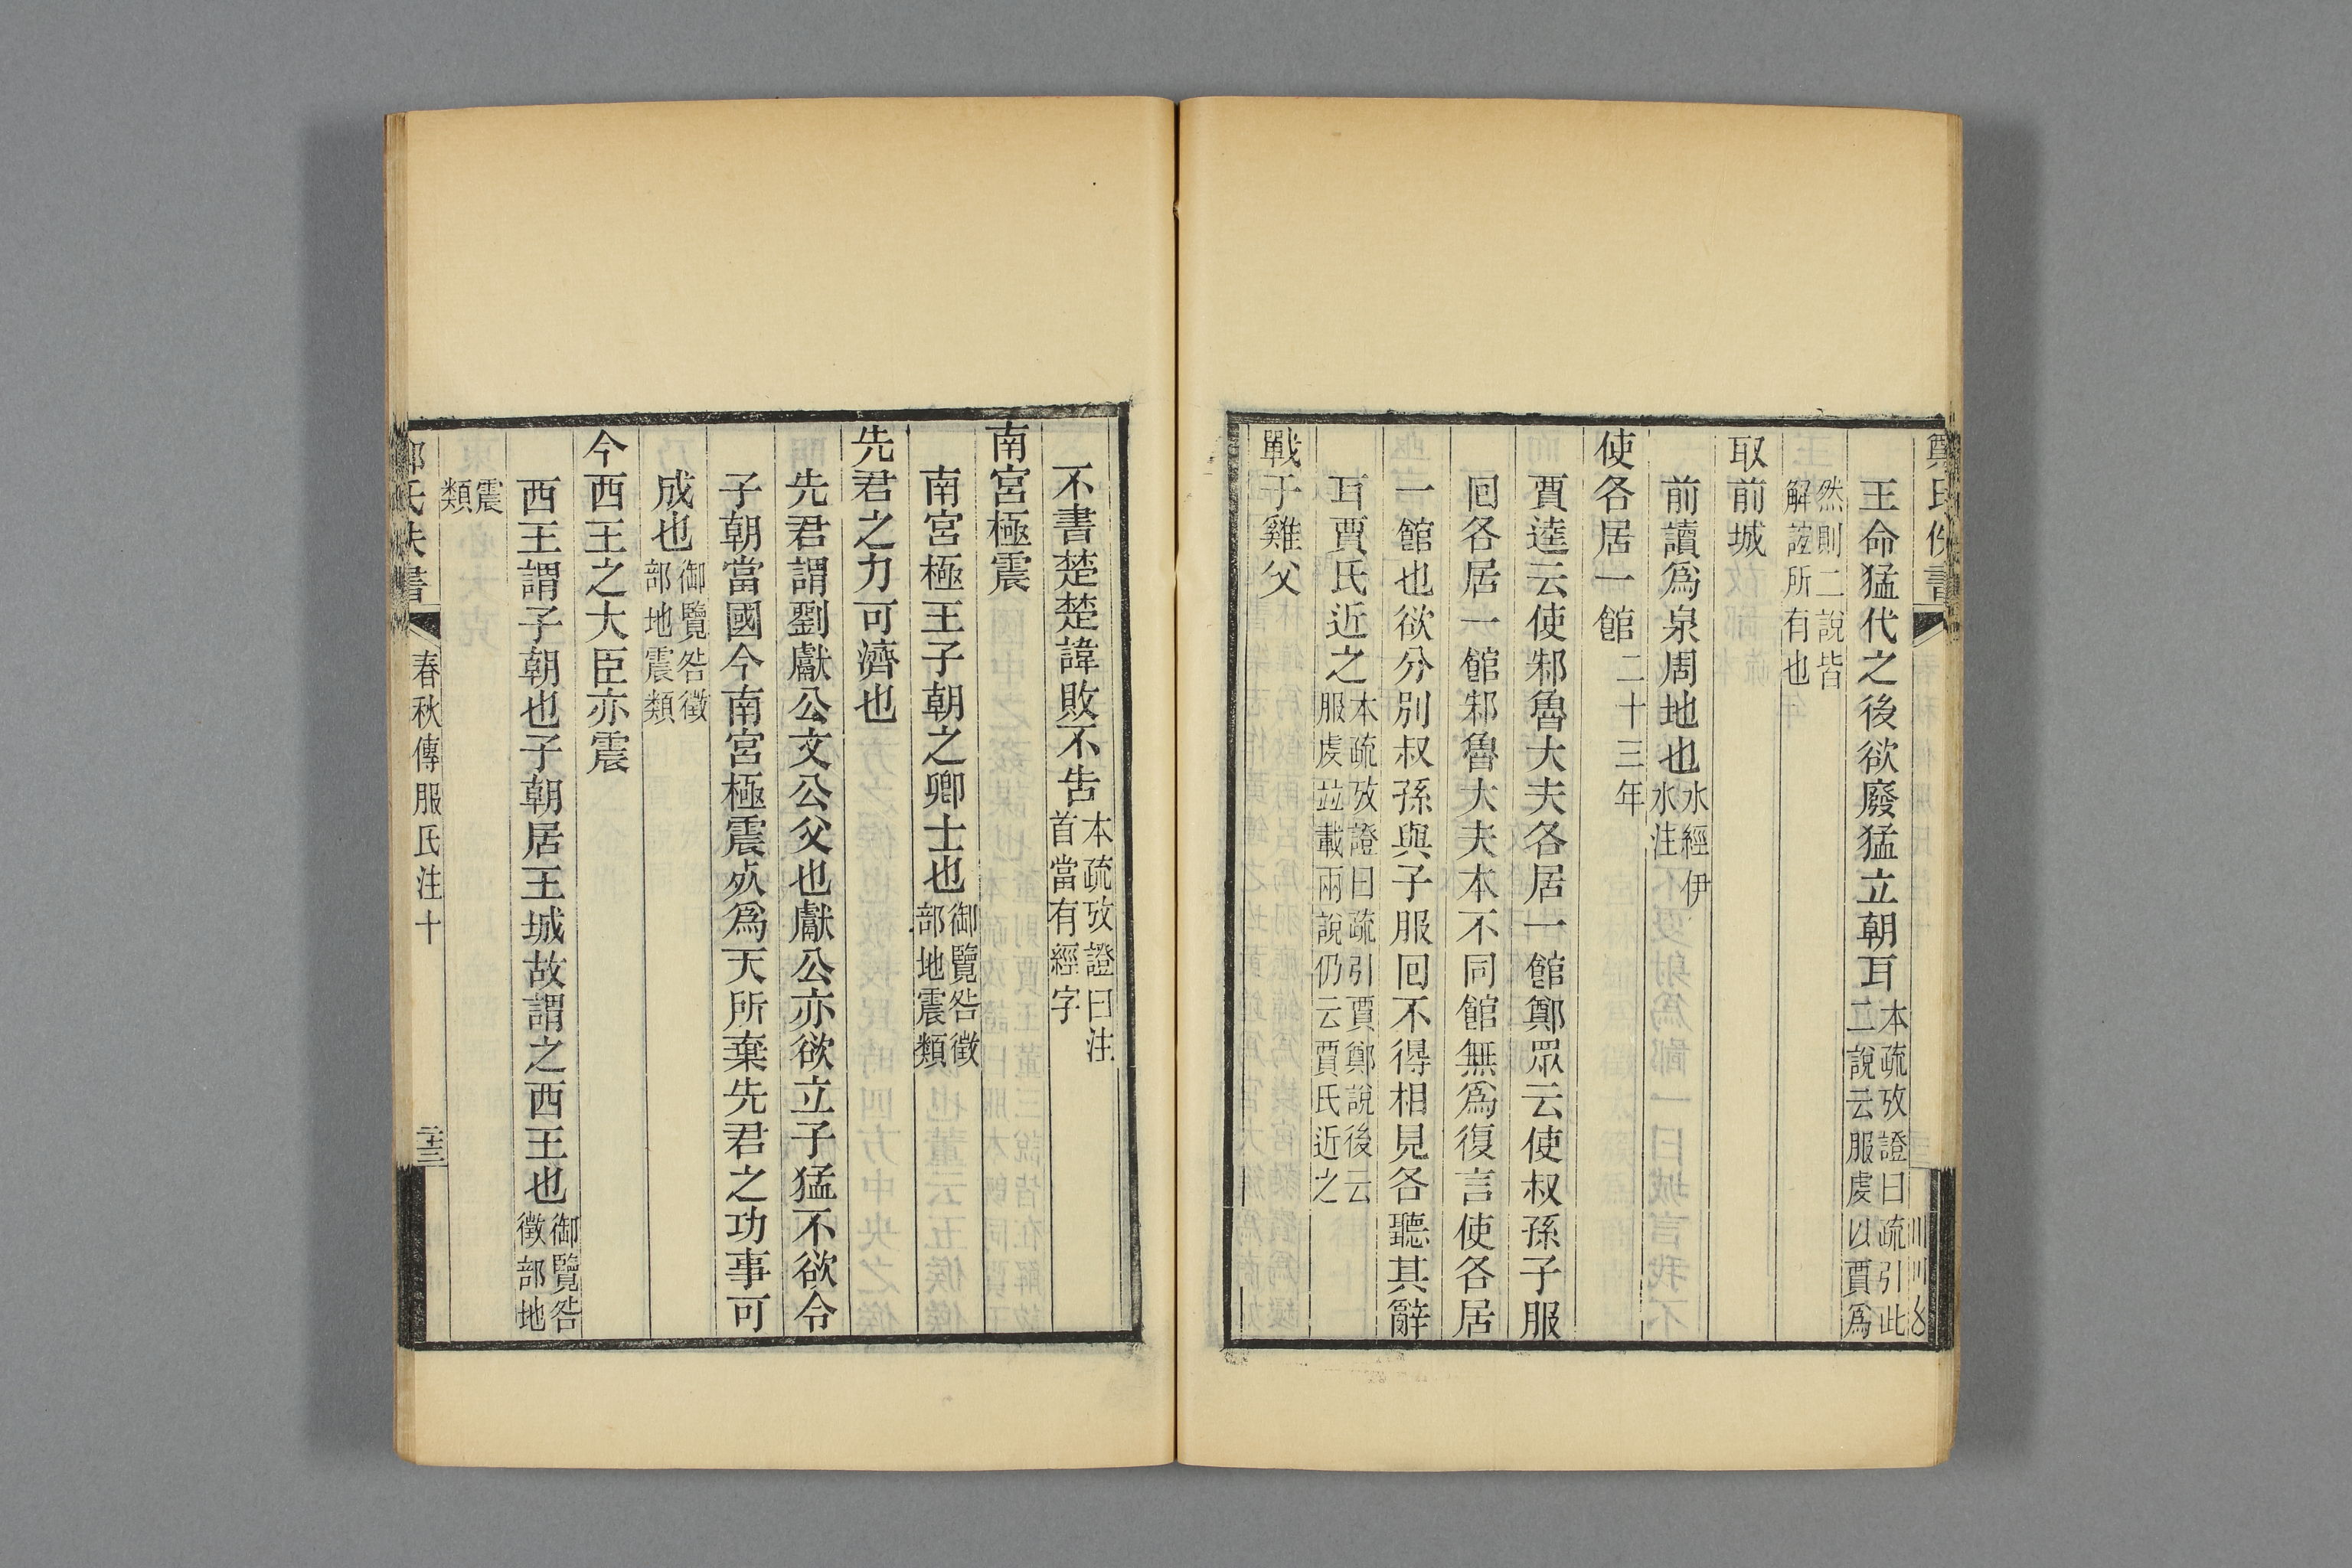 王命猛代之後欲廢猛立朝耳本疏攷證曰疏引此
二說云服虔以賈爲
然則二說皆
解誼所有也
取前城
前讀爲泉周地也水經伊
水注
使各居一館二十三年
賈逵云使邾魯大夫各居一館鄭眾云使叔孫子服
回各居一館邾魯大夫本不同館無爲復言使各居
一館也欲分別叔孫與子服回不得相見各聽其辭
耳賈氏近之本疏攷證曰疏引賈鄭說後云
服虔並載兩說仍云賈氏近之
戰于雞父
不書楚楚諱敗不告本疏攷證曰注
首當有經字
南宮極震
南宮極王子朝之卿士也御覽咎徵
部地震類
先君之力可濟也
先君謂劉獻公文公父也獻公亦欲立子猛不欲令
子朝當國今南宮極震死爲天所棄先君之功事可
成也御覽咎徵
部地震類
今西王之大臣亦震
西王謂子朝也子朝居王城故謂之西王也御覽咎
徵部地
震
類
春秋傳服氏注十
二十三